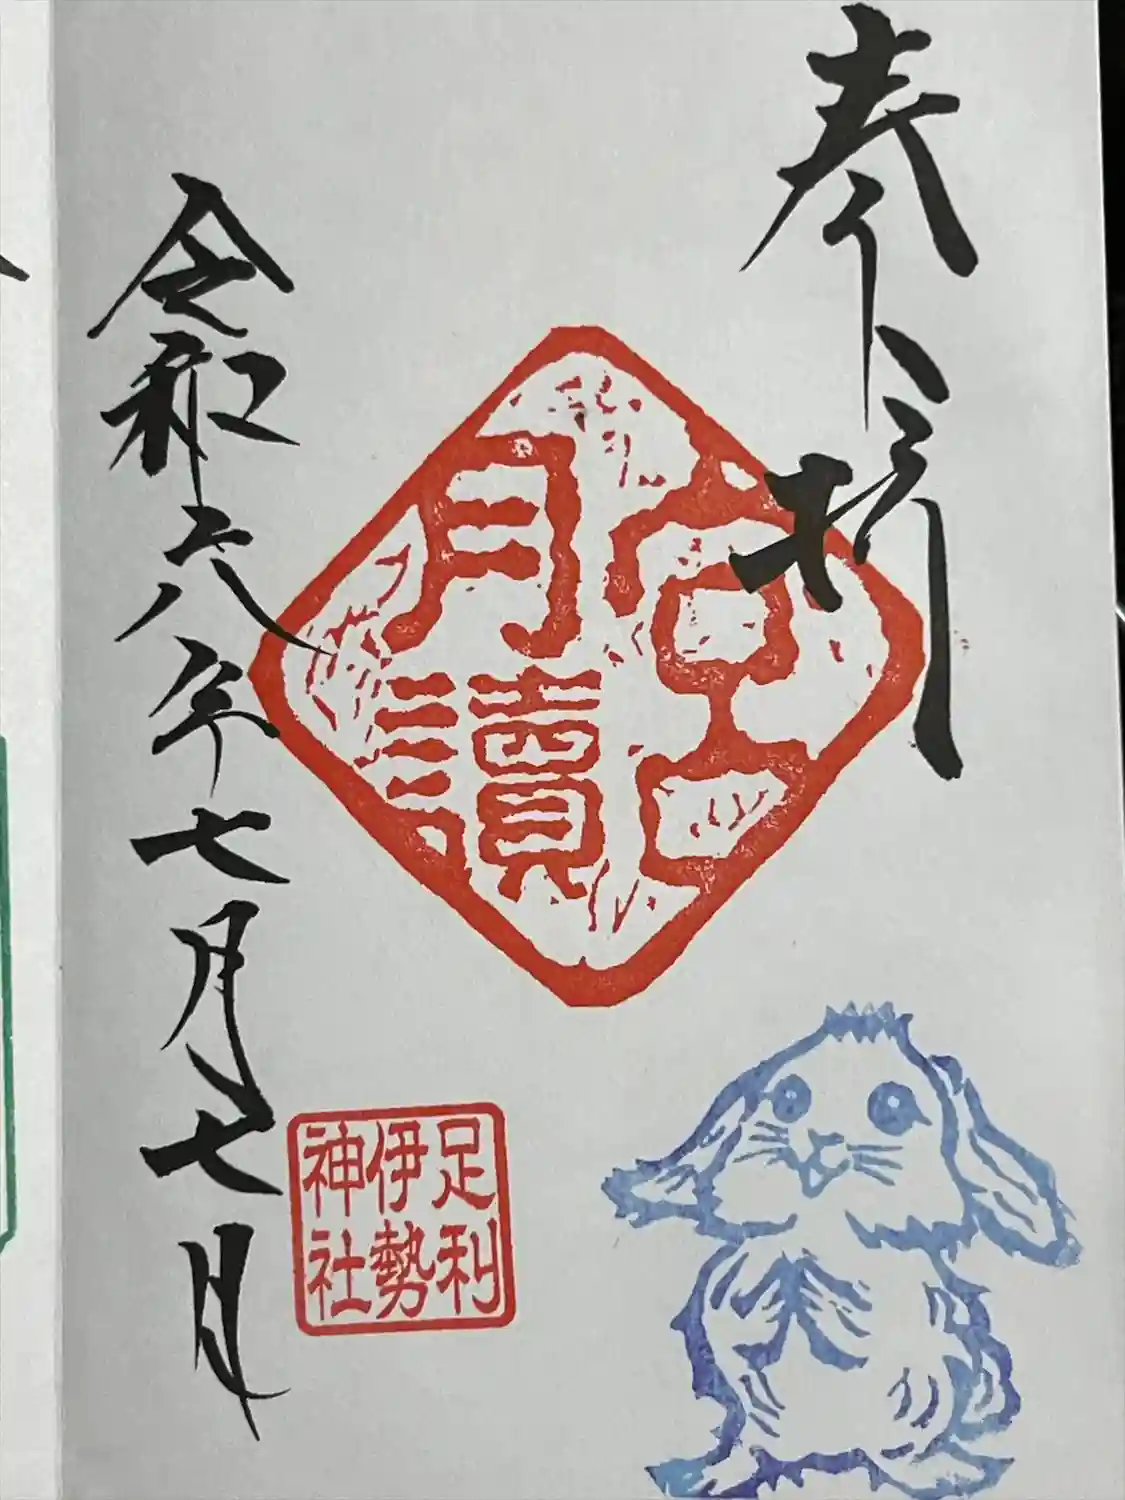 奉拝
宮
月讀
足利
伊勢
神社
令和六年七月七日